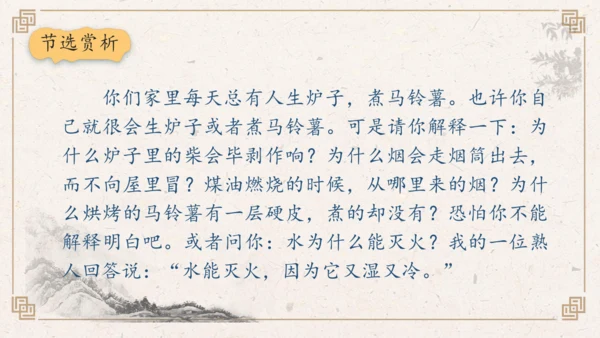 节选赏析
你们家里每天总有人生炉子，煮马铃薯。也许你自
己就很会生炉子或者煮马铃薯。可是请你解释一下：为
什么炉子里的柴会毕剥作响？为什么烟会走烟筒出去，
而不向屋里冒？煤油燃烧的时候，从哪里来的烟？为什
么烘烤的马铃薯有一层硬皮，煮的却没有？恐怕你不能
解释明白吧。或者问你：水为什么能灭火？我的一位熟
人回答说：“水能灭火，因为它又湿又冷。”